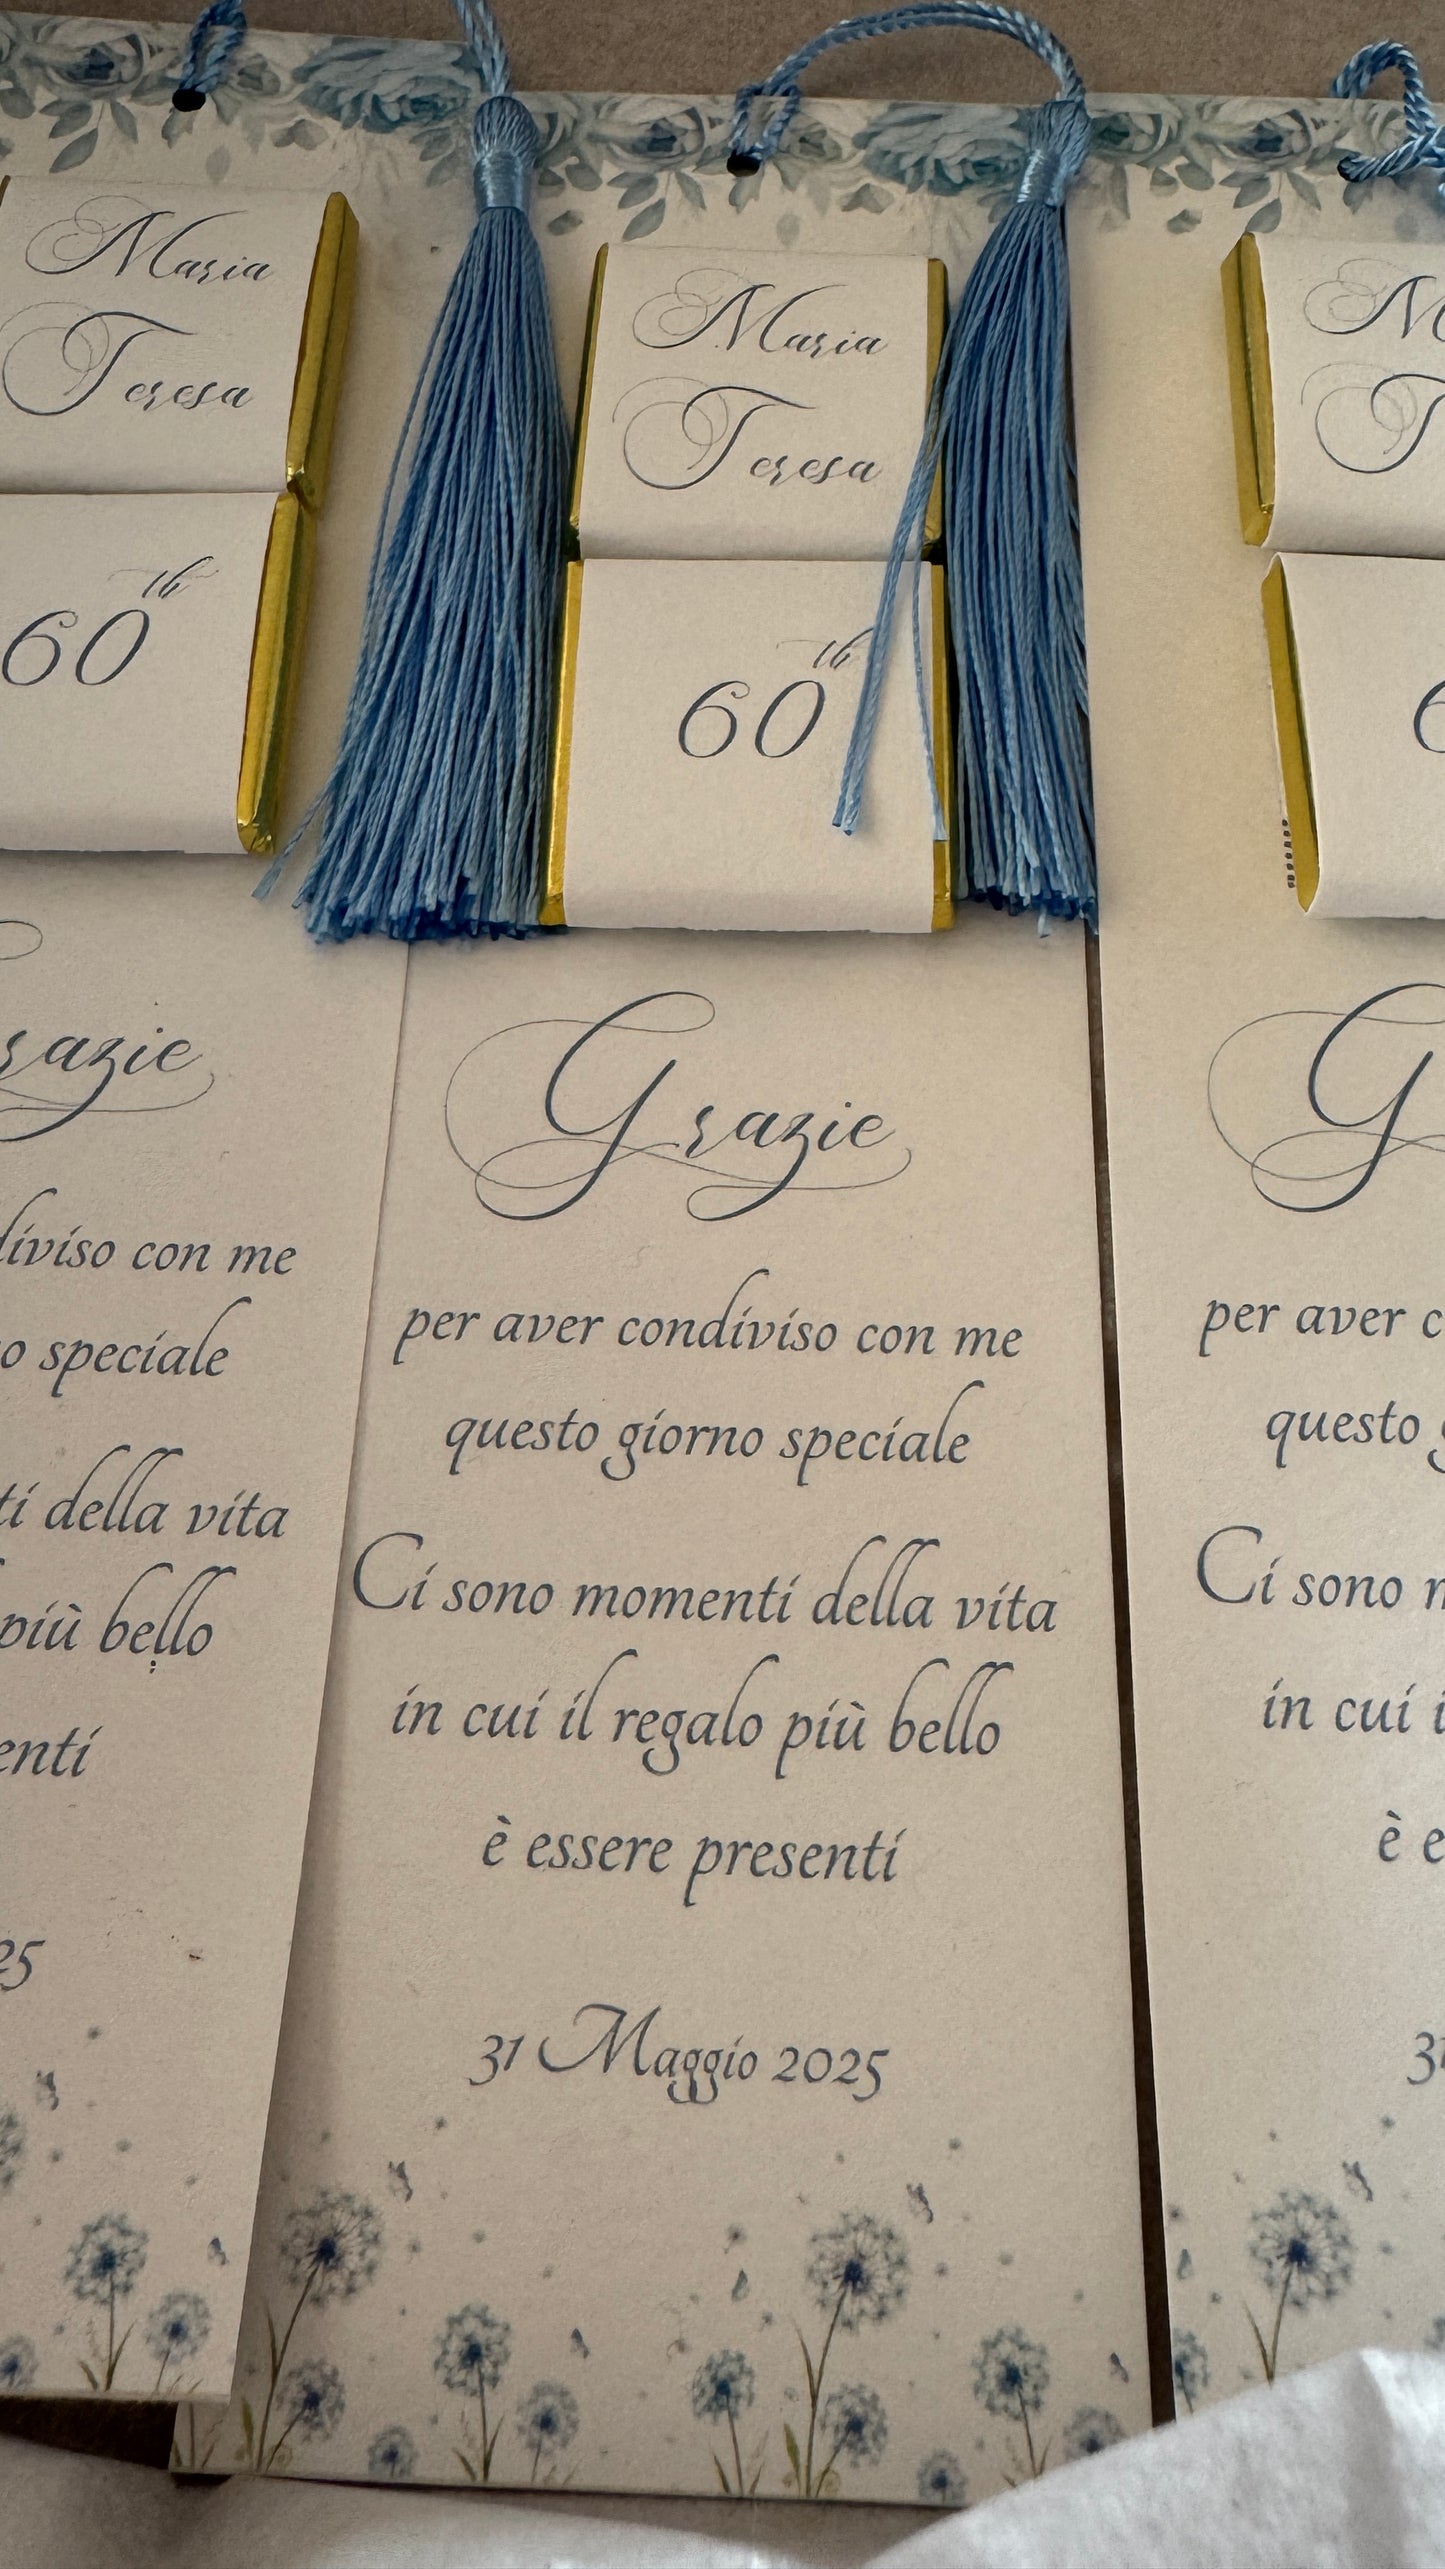 Maria
Teresa
60th
razie
diviso con me
o speciale
ti della vita
più bello
enti
25
Maria
Teresa
60th
Grazie
per aver condiviso con me
questo giorno speciale
Ci sono momenti della vita
in cui il regalo più bello
è essere presenti
31 Maggio 2025
M
T
6
G
per aver c
questo g
Ci sono m
in cui i
è e
31